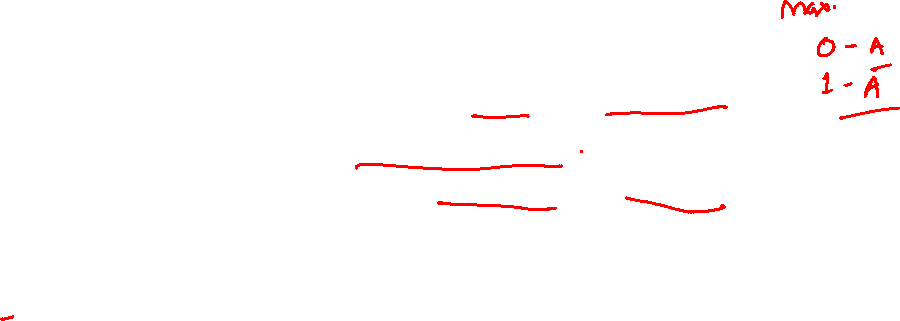 Max.
0 - A
1 - A̅